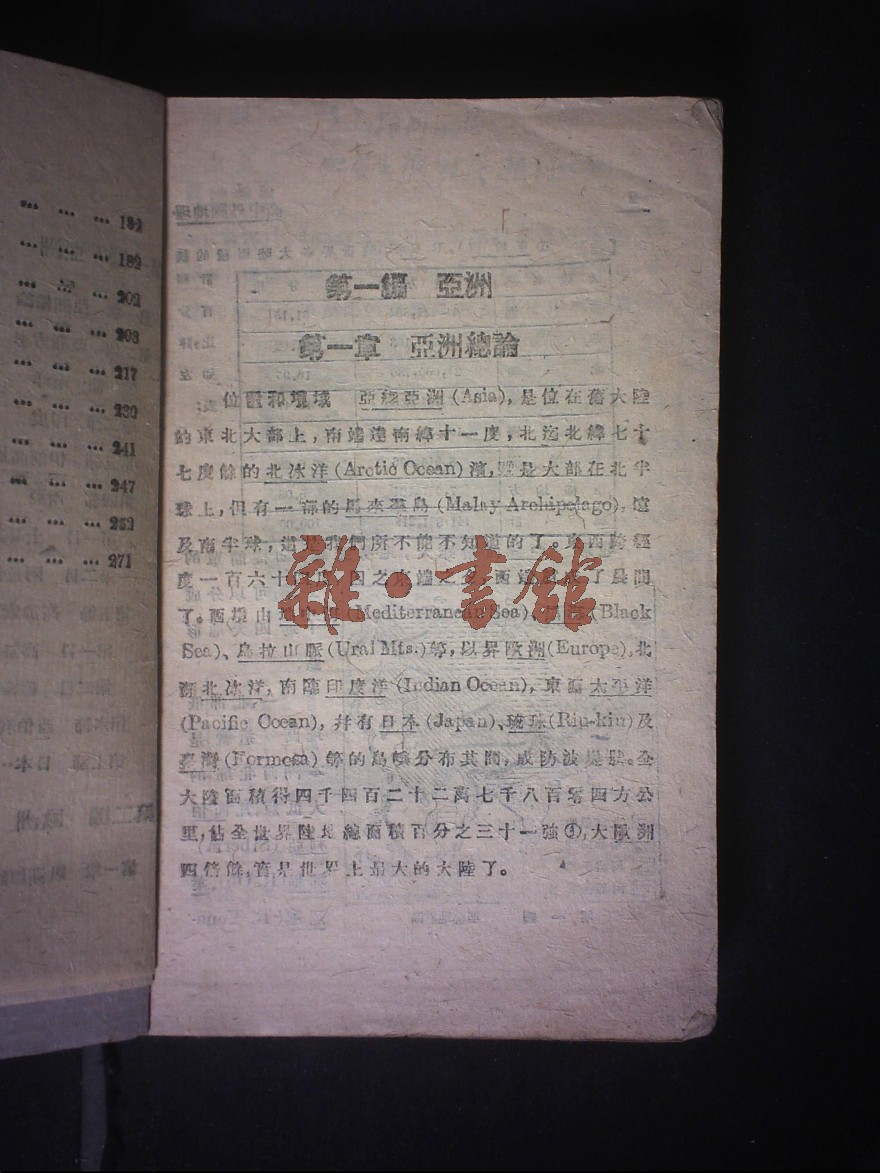 182
189
202
208
217
230
241
247
262
271
第一編 亞洲
第一章 亞洲總論
位置和境域 亞細亞洲(Asia),是位在舊大陸
的東北大部上,南端達南緯十一度,北迄北緯七十
七度餘的北冰洋(Arctic Ocean)濱,雖是大部在北半
球上,但有一部的馬來羣島(Malay Archipelago),遠
及南半球,這是我們所不能不知道的了。東西跨經
度一百六十四度,
了。西境由地中海(Mediterranean Sea)、黑海(Black
Sea)、烏拉山脈(Ural Mts.)等,以界歐洲(Europe),北
瀕北冰洋,南臨印度洋(Indian Ocean),東面太平洋
(Pacific Ocean),幷有日本(Japan)、琉球(Riu-kiu)及
臺灣(Formosa)等的島嶼分布其間,成防波堤狀。全
大陸面積得四千四百二十二萬七千八百零四方公
里,佔全世界陸地總面積百分之三十一強①,大歐洲
四倍餘,實是世界上最大的大陸了。
雜·書館